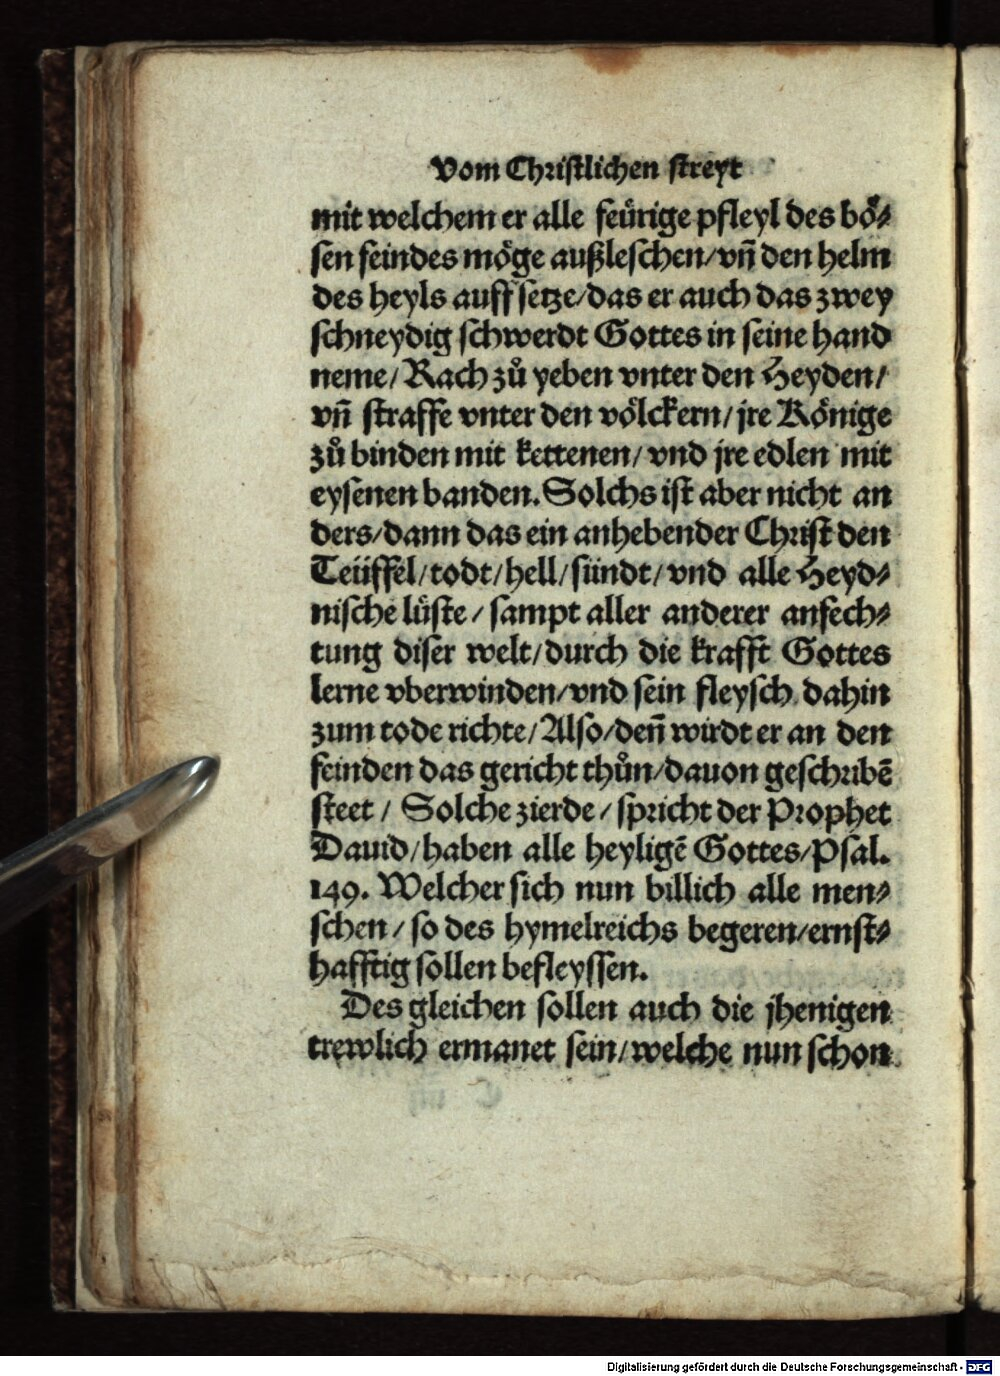 Vom Christlichen streyt
mit welchem er alle feürige pfleyl des bö⸗
sen feindes möge außleschen/vn̄ den helm
des heyls auff setze/das er auch das zwey
schneydig schwerdt Gottes in seine hand
neme/Rach zů yeben vnter den Heyden/
vn̄ straffe vnter den völckern/jre Könige
zů binden mit kettenen/vnd jre edlen mit
eysenen banden. Solchs ist aber nicht an
ders/dann das ein anhebender Christ den
Teüffel/todt/hell/sündt/vnd alle Heyd⸗
nische lüste/sampt aller anderer anfech⸗
tung diser welt/durch die krafft Gottes
lerne vberwinden/vnd sein fleysch dahin
zum tode richte/Also/den̄ wirdt er an den
feinden das gericht thůn/dauon geschribē
steet/ Solche zierde/spricht der Prophet
Dauid/haben alle heyligē Gottes/Psal.
149. Welcher sich nun billich alle men⸗
schen/so des hymelreichs begeren/ernst⸗
hafftig sollen befleyssen.
Des gleichen sollen auch die jhenigen
trewlich ermanet sein/welche nun schon
Digitalisierung gefördert durch die Deutsche Forschungsgemeinschaft - DFG